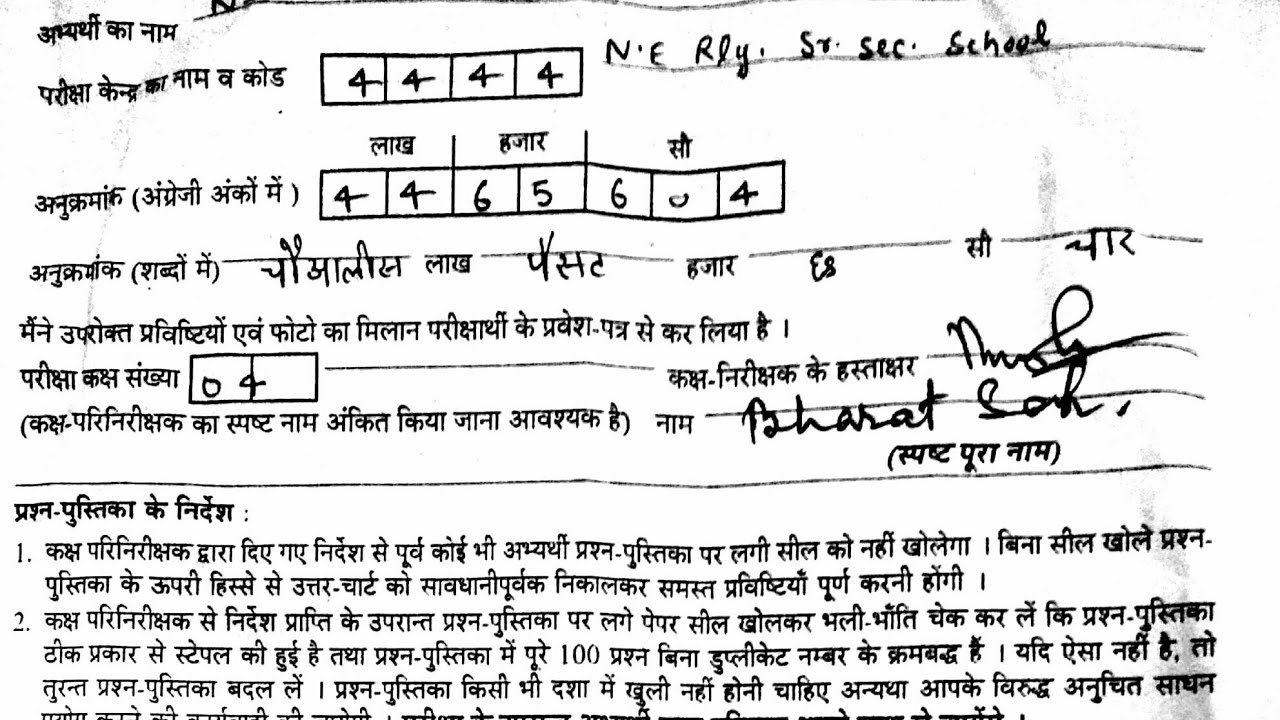 अभ्यर्थी का नाम
परीक्षा केन्द्र का नाम व कोड 4 4 4 4 N.E Rly. Sr. Sec. School
लाख हजार सौ
अनुक्रमांक (अंग्रेजी अंकों में ) 4 4 6 5 6 0 4
अनुक्रमांक (शब्दों में) चौआलीस लाख पैसट हजार छः सौ चार
मैंने उपरोक्त प्रविष्टियों एवं फोटो का मिलान परीक्षार्थी के प्रवेश-पत्र से कर लिया है ।
परीक्षा कक्ष संख्या 0 4 कक्ष-निरीक्षक के हस्ताक्षर
(कक्ष-परिनिरीक्षक का स्पष्ट नाम अंकित किया जाना आवश्यक है) नाम Bharat
(स्पष्ट पूरा नाम)
प्रश्न-पुस्तिका के निर्देश :
1. कक्ष परिनिरीक्षक द्वारा दिए गए निर्देश से पूर्व कोई भी अभ्यर्थी प्रश्न-पुस्तिका पर लगी सील को नहीं खोलेगा । बिना सील खोले प्रश्न-
पुस्तिका के ऊपरी हिस्से से उत्तर-चार्ट को सावधानीपूर्वक निकालकर समस्त प्रविष्टियाँ पूर्ण करनी होंगी ।
2. कक्ष परिनिरीक्षक से निर्देश प्राप्ति के उपरान्त प्रश्न-पुस्तिका पर लगे पेपर सील खोलकर भली-भाँति चेक कर लें कि प्रश्न-पुस्तिका
ठीक प्रकार से स्टेपल की हुई है तथा प्रश्न-पुस्तिका में पूरे 100 प्रश्न बिना डुप्लीकेट नम्बर के क्रमबद्ध हैं । यदि ऐसा नहीं है, तो
तुरन्त प्रश्न-पुस्तिका बदल लें । प्रश्न-पुस्तिका किसी भी दशा में खुली नहीं होनी चाहिए अन्यथा आपके विरुद्ध अनुचित साधन